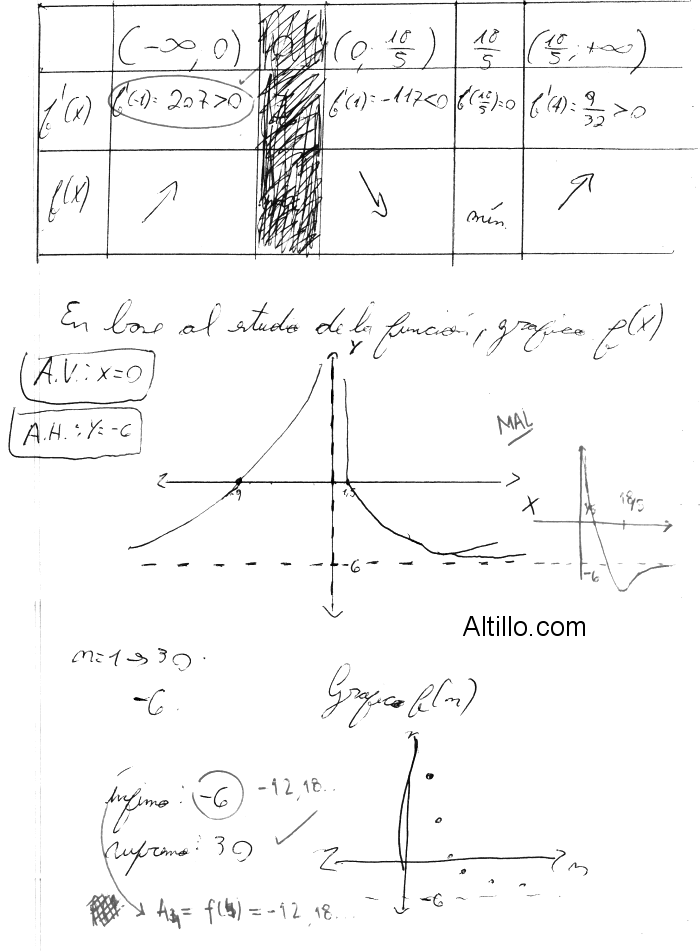 (-∞, 0) 0 (0; 18/5) 18/5 (18/5; +∞)
f'(x) f'(-1)=207>0 f'(1)=-117<0 f'(18/5)=0 f'(4)=9/32>0
f(x) ↗ ↘ mín. ↗
En base al estudio de la función, grafico f(x)
A.V.: x=0
A.H.: y=-6
Y
MAL
-9 1,5
X
18/5
-6
-6
Altillo.com
n=1→30.
-6.
Grafico f(n)
ínfimo: -6 -12,18...
supremo: 30
n
-6
= f(4) = -12,18...